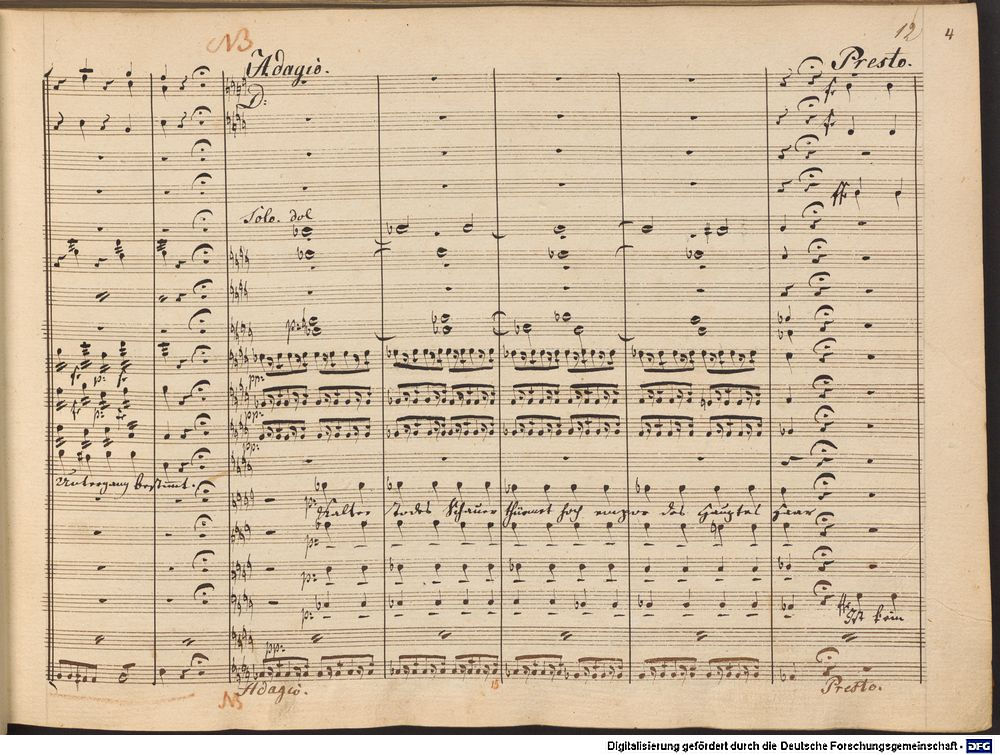 12 4
NB
Adagio. Presto.
D:
Solo. dol
Untergang bestimmt.
Kalter Todes Schauer thürmet hoch empor des Hauptes Haar
Ist kein
Adagio. Presto.
NB
Digitalisierung gefördert durch die Deutsche Forschungsgemeinschaft - DFG